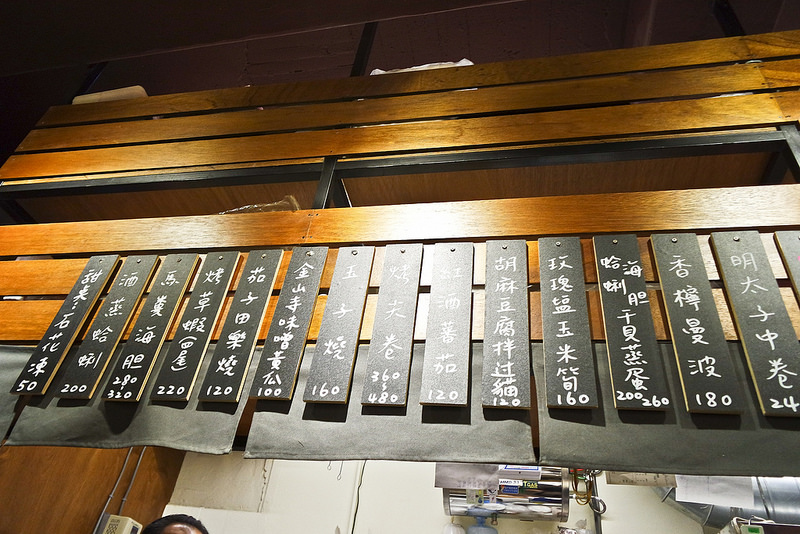 甜点:石花凍
50
酒蒸蛤蜊
200
馬糞海胆
280
320
烤草蝦四尾
220
茄子田樂燒
120
金山寺味噌黃瓜
100
玉子燒
160
烤尖卷
360~480
紅酒蕃茄
120
胡麻豆腐拌过貓
120
玫瑰塩玉米筍
160
蛤蜊
海胆干貝蒸蛋
200
260
香檸曼波
180
明太子中卷
24